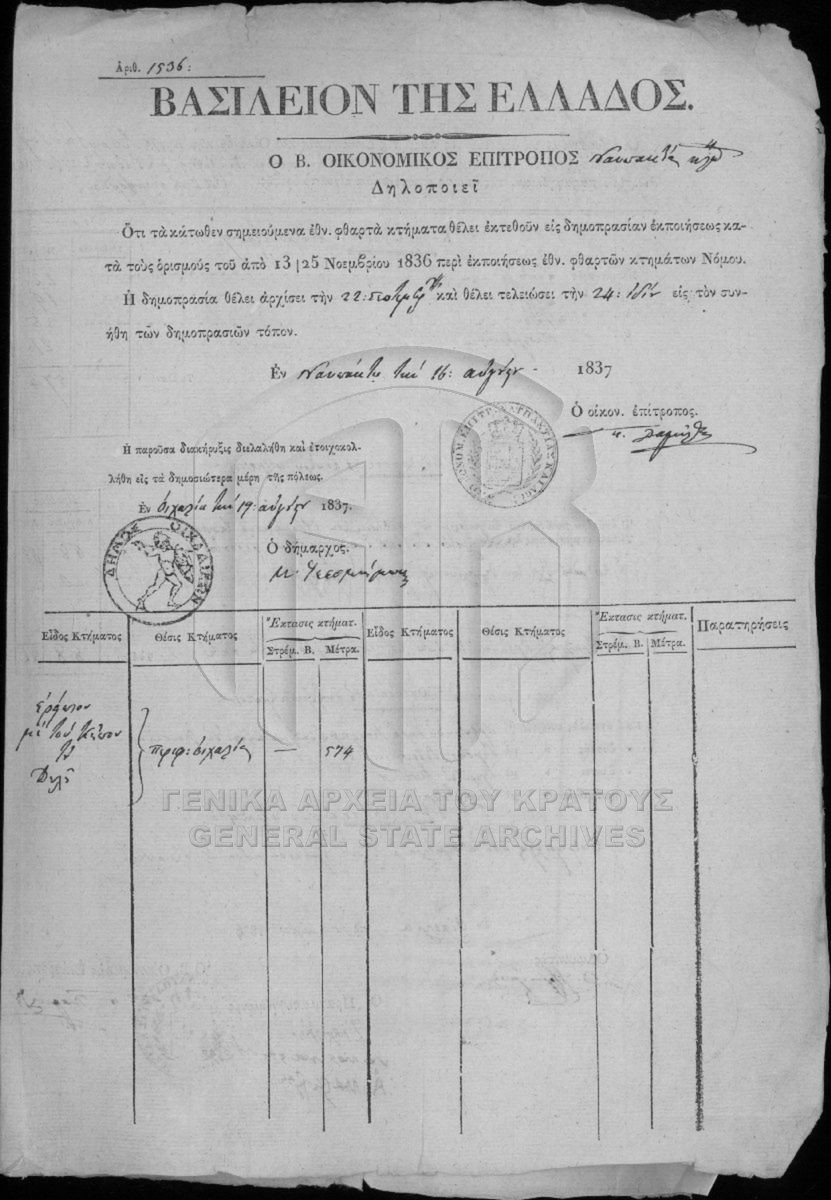 Ἀριθ. 1536:
ΒΑΣΙΛΕΙΟΝ ΤΗΣ ΕΛΛΑΔΟΣ.
Ο Β. ΟΙΚΟΝΟΜΙΚΟΣ ΕΠΙΤΡΟΠΟΣ Ναυπακτίας
Δηλοποιεῖ
Ὅτι τὰ κάτωθεν σημειούμενα ἐθν. φθαρτὰ κτήματα θέλει ἐκτεθοῦν εἰς δημοπρασίαν ἐκποιήσεως κα-
τὰ τοὺς ὁρισμοὺς τοῦ ἀπὸ 13|25 Νοεμβρίου 1836 περὶ ἐκποιήσεως ἐθν. φθαρτῶν κτημάτων Νόμου.
Ἡ δημοπρασία θέλει ἀρχίσει τὴν 22: καὶ θέλει τελειώσει τὴν 24: ἰδίου εἰς τὸν συν-
ήθη τῶν δημοπρασιῶν τόπον.
Ἐν Ναυπάκτῳ τῇ 16: αὐγούστου 1837
Ὁ οἰκον. ἐπίτροπος.
Ἡ παροῦσα διακήρυξις διελαλήθη καὶ ἐτοιχοκολ-
λήθη εἰς τὰ δημοσιώτερα μέρη τῆς πόλεως.
Ἐν οἰχαλίᾳ τῇ 19: αὐγούστου 1837.
Ὁ δήμαρχος.
ΔΗΜΟΣ ΟΙΧΑΛΙΕΩΝ
Εἶδος Κτήματος Θέσις Κτήματος Ἔκτασις κτήματ. Εἶδος Κτήματος Θέσις Κτήματος Ἔκτασις κτήματ. Παρατηρήσεις
Στρέμ. Β. Μέτρα. Στρέμ. Β. Μέτρα.
ἐρείπιον
μὲ τὸν κῆπον
τοῦ
περιφ: οἰχαλίας — 574
ΓΕΝΙΚΑ ΑΡΧΕΙΑ ΤΟΥ ΚΡΑΤΟΥΣ
GENERAL STATE ARCHIVES